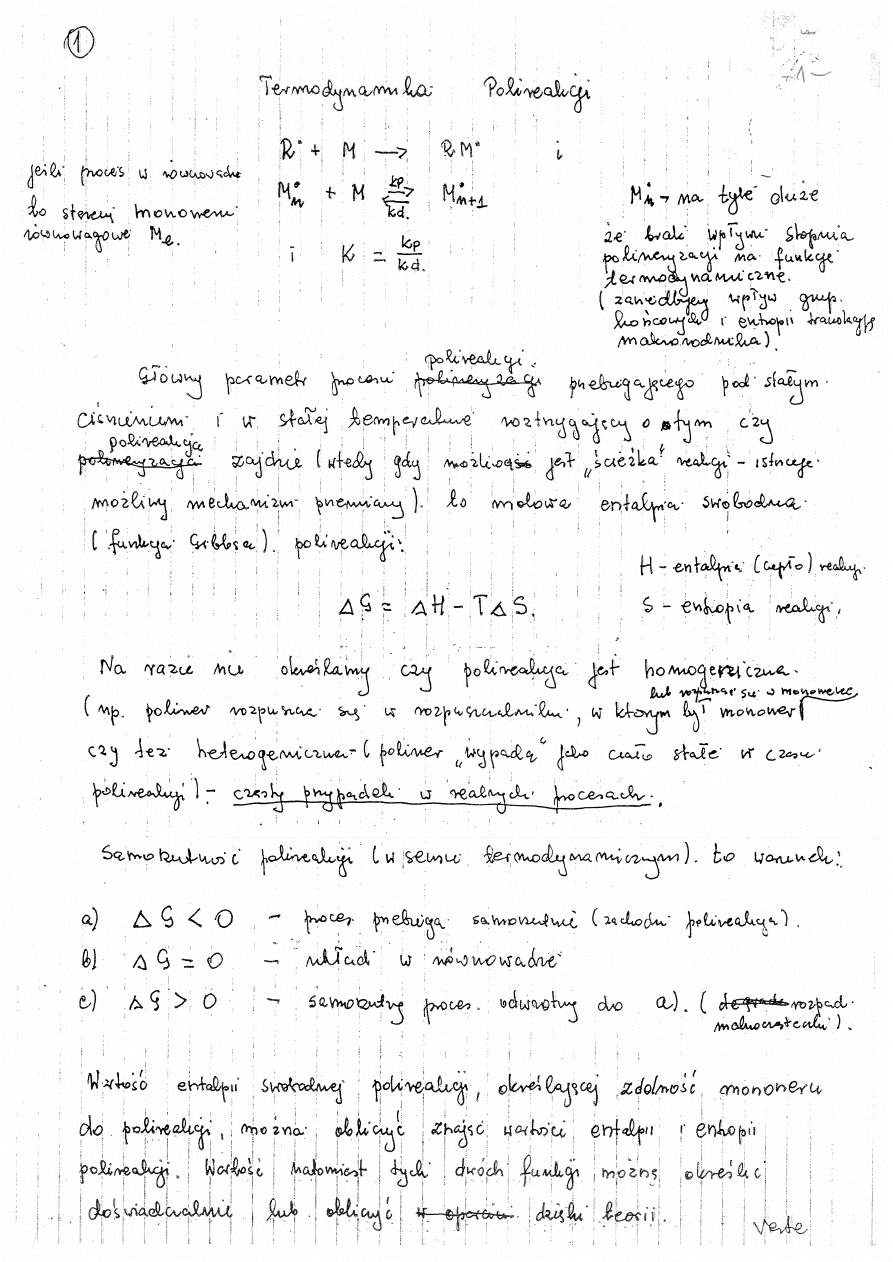 1
-1-
Termodynamika Polireakcji
R• + M → RM• i
jeśli proces w równowadze
to stężenie monomeru
równowagowe Me.
M•n + M ⇌ M•n+1
kp
kd.
i K = kp / kd.
M•n → na tyle duże
że brak wpływu stopnia
polimeryzacji na funkcje
termodynamiczne.
(zaniedbujemy wpływ grup.
końcowych i entropii translacji
makrorodnika).
polireakcji.
Główny parametr procesu polimeryzacji przebiegającego pod stałym
ciśnieniem i w stałej temperaturze rozstrzygający o tym czy
polireakcja
polimeryzacja zajdzie (wtedy gdy możliwa jest „ścieżka" reakcji - istnieje
możliwy mechanizm przemiany). to molowa entalpia swobodna
(funkcja Gibbsa). polireakcji:
H - entalpia (ciepło) reakcji.
ΔG = ΔH - TΔS.
S - entropia reakcji.
Na razie nie określamy czy polireakcja jest homogeniczna.
lub rozpuszcza się w monomerze
(np. polimer rozpuszcza się w rozpuszczalniku, w którym był monomer
czy też heterogeniczna - (polimer „wypada" jako ciało stałe w czasie
polireakcji) - częsty przypadek w realnych procesach.
Samorzutność polireakcji (w sensie termodynamicznym). to warunek:
a) ΔG < 0 - proces przebiega samorzutnie (zachodzi polireakcja).
b) ΔG = 0 - układ w równowadze
c) ΔG > 0 - samorzutny proces. odwrotny do a). (degrada rozpad
makrocząsteczki).
Wartość entalpii swobodnej polireakcji, określającej zdolność monomeru
do polireakcji, można obliczyć znając wartości entalpii i entropii
polireakcji. Wartość natomiast tych dwóch funkcji można określić
doświadczalnie lub obliczyć w oparciu dzięki teorii.
Verte